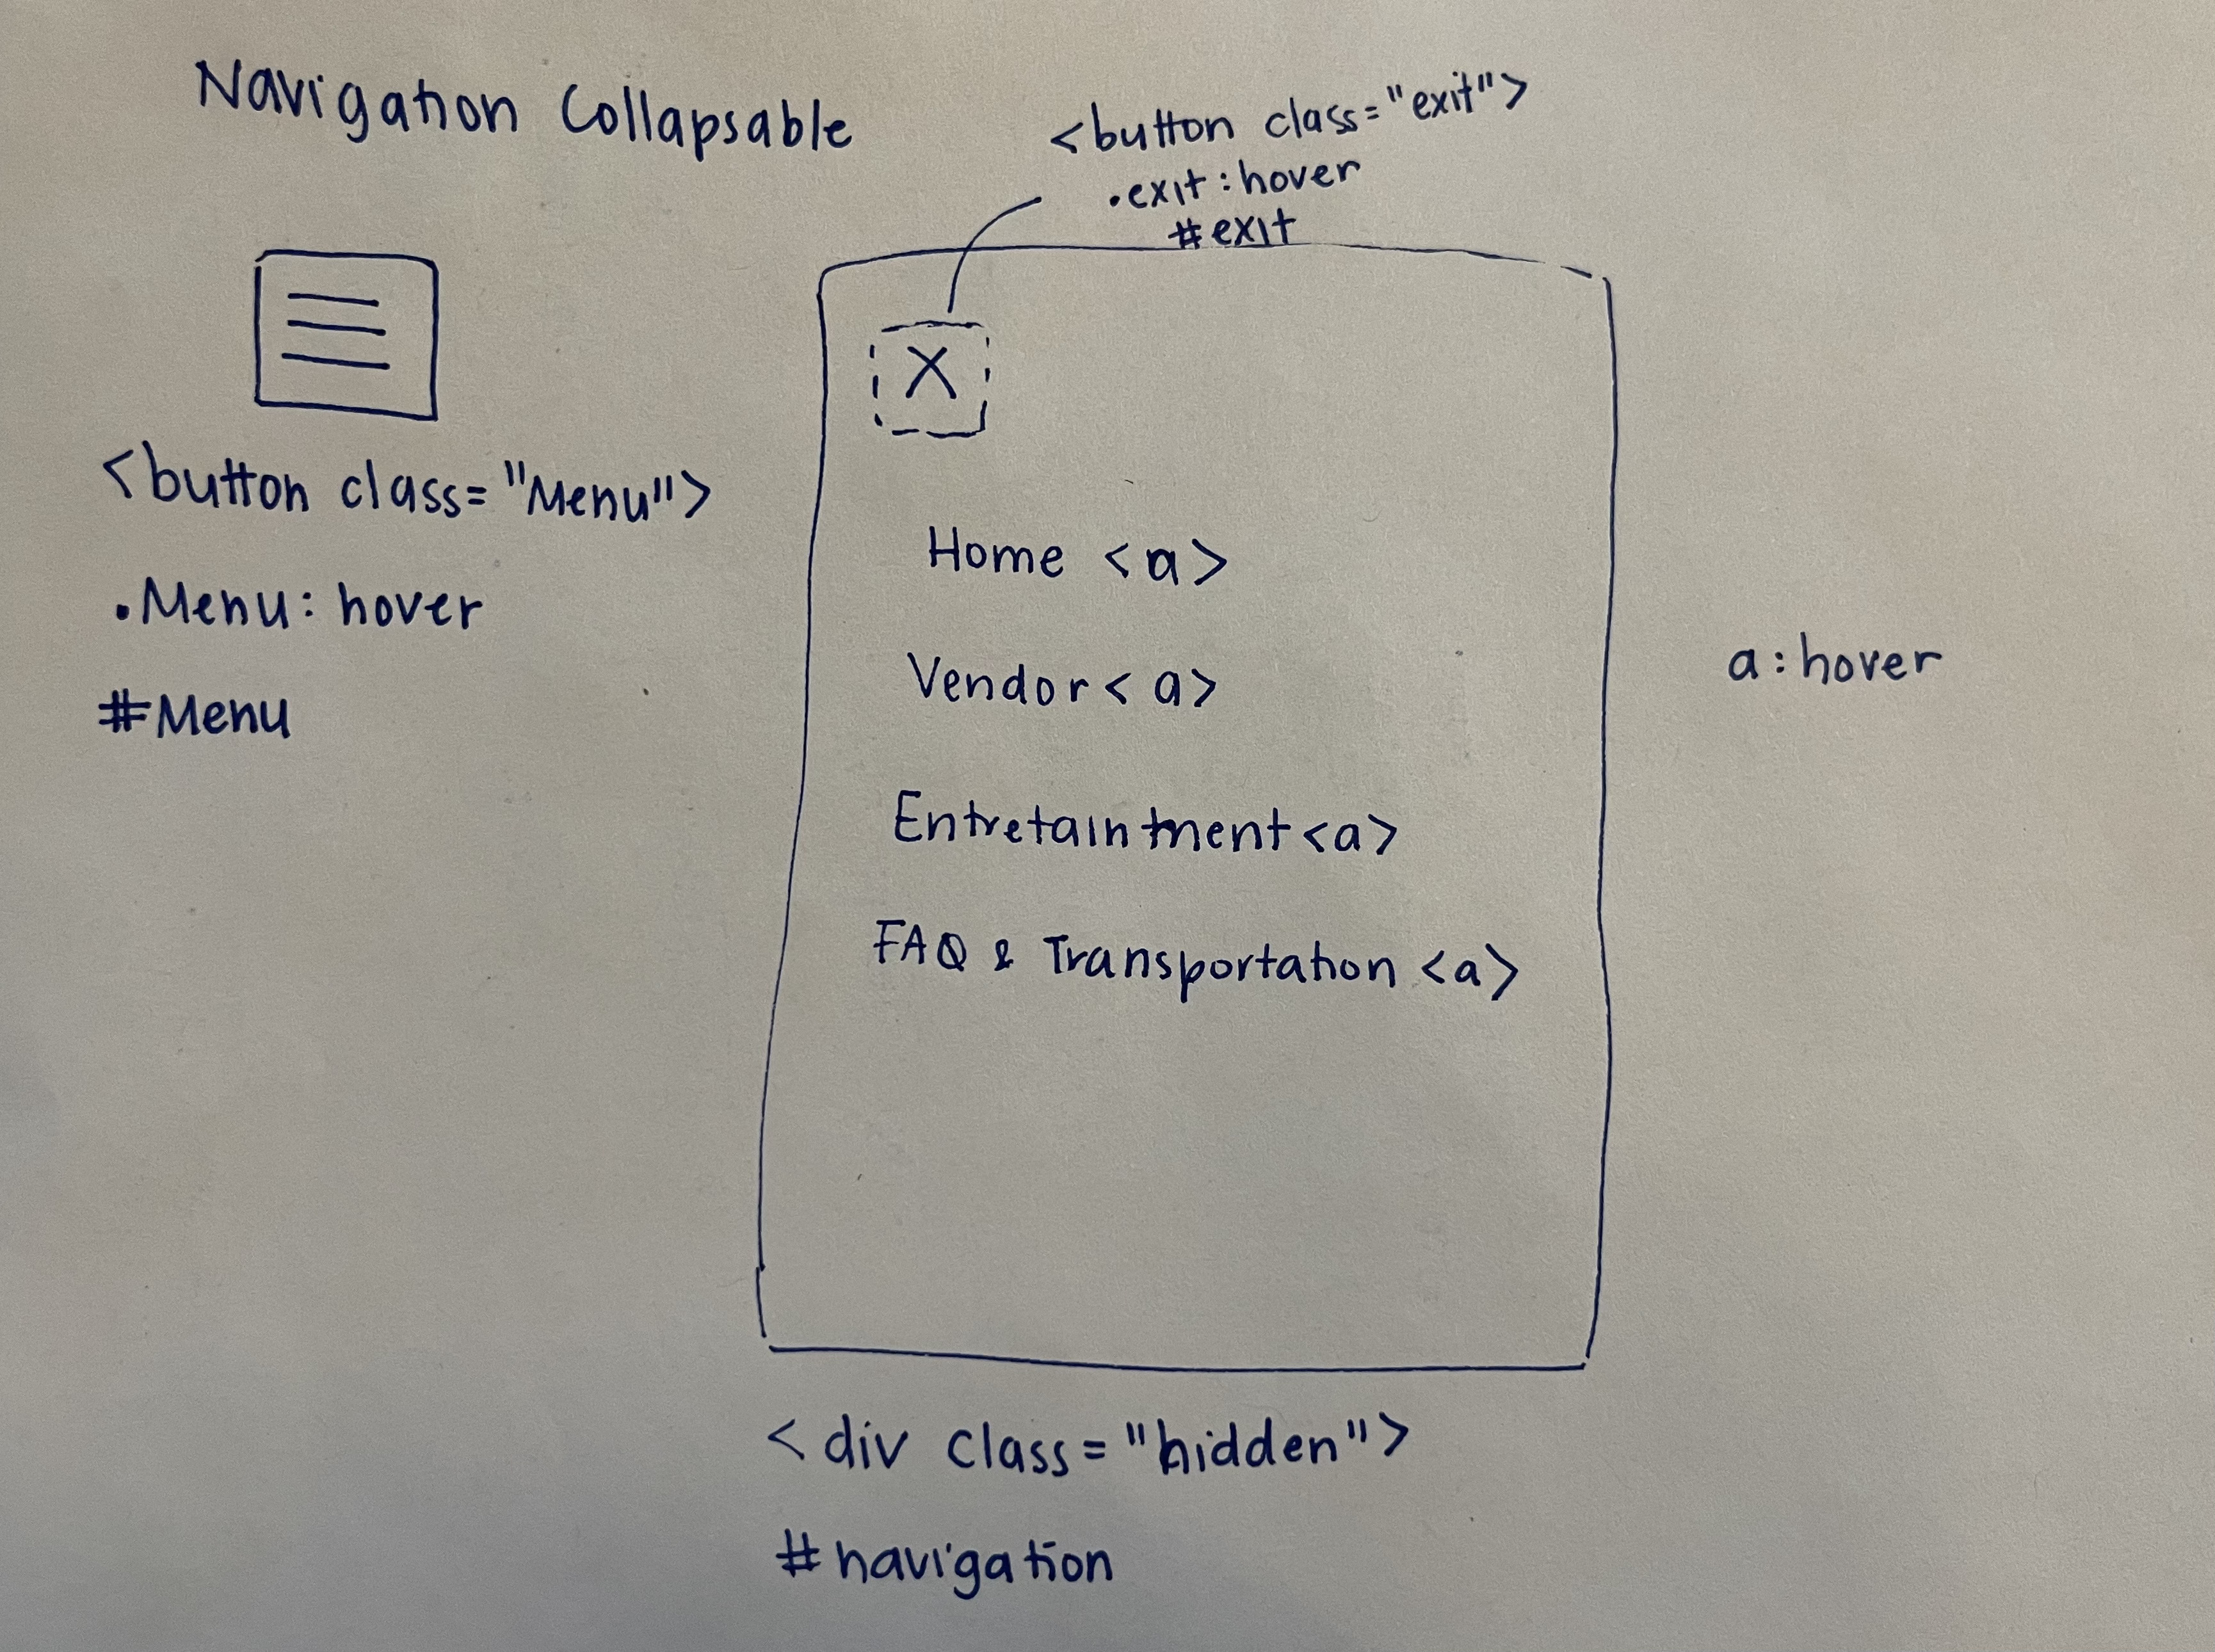 Navigation Collapsable
<button class="exit">
.exit:hover
#exit
X
<button class="Menu">
.Menu: hover
#Menu
Home <a>
Vendor <a>
a:hover
Entretaintment <a>
FAQ & Transportation <a>
<div class="hidden">
#navigation